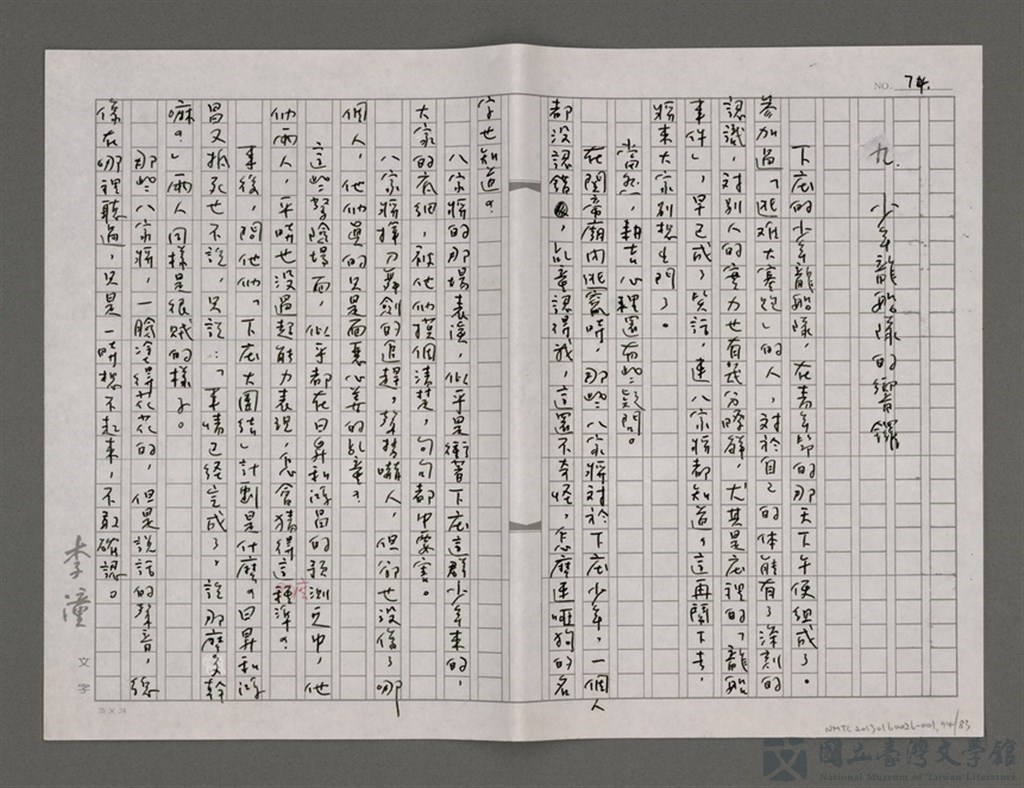 NO. 74.
九、少年龍船隊的響鑼
下庄的少年龍船隊，在青年節的那天下午便組成了。
參加過「逃難大賽跑」的人，對於自己的体能有了深刻的
認識，對別人的實力也有幾分瞭解，尤其是庄裡的「龍船
事件」，早已成了笑話，連八家將都知道，這再鬧下去，
將來大家別想出門了。
當然，耕吉心裡還有些疑問。
在關帝廟內逃竄時，那些八家將對於下庄少年，一個人
都沒認錯，乩童認得我，這還不奇怪，怎麼連啞狗的名
字也知道？
八家將的那場表演，似乎是衝著下庄這群少年來的，
大家的底細，被他們摸個清楚，句句都中要害。
八家將揮刀舞劍的追趕，聲勢嚇人，但卻也沒傷了哪
個人，他們真的只是面惡心善的乩童？
這些驚險場面，似乎都在日昇和鴻昌的預測之中，他
們兩人，平時也沒過起能力表現，怎會猜得這麼準？
事後，問他們「下庄大團結」計劃是什麼？日昇和鴻
昌又抵死也不說，只說：「事情已經完成了，說那麼多幹
嘛？」兩人同樣是很賊的樣子。
那些八家將，一臉塗得花花的，但是說話的聲音，總
像在哪裡聽過，只是一時想不起來，不敢確認。
李潼
文字
25 X 24
NMTL20130160026-001, 74/83
國立臺灣文學館
National Museum of Taiwan Literature